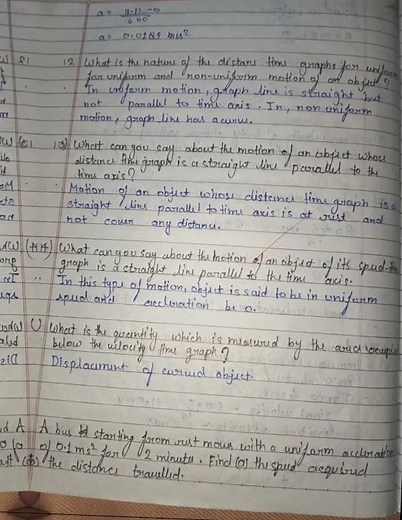 a = 11.11 - 0
600
a = 0.0185 ms²
12 What is the nature of the distan time graphs for uniform
for uniform and non-uniform motion of an object?
In uniform motion, graph line is straight but
not parallel to time axis. In, non uniform
motion, graph line has a curve.
13) What can you say about the motion of an object whose
distance time graph is a straight line parallel to the
time axis?
Motion of an object whose distance time graph is a
straight line parallel to time axis is at rest and
not cover any distance.
What can you say about the motion of an object of its speed-
graph is a straight line parallel to the time axis.
In this type of motion, object is said to be in uniform
speed and accleration be 0.
What is the quantity which is measured by the area
below the velocity time graph?
Displacement of object.
A A bus starting from rest moves with a uniform accleration
of 0.1 ms² for 2 minute. Find (a) the speed acquired
(b) the distance travelled.